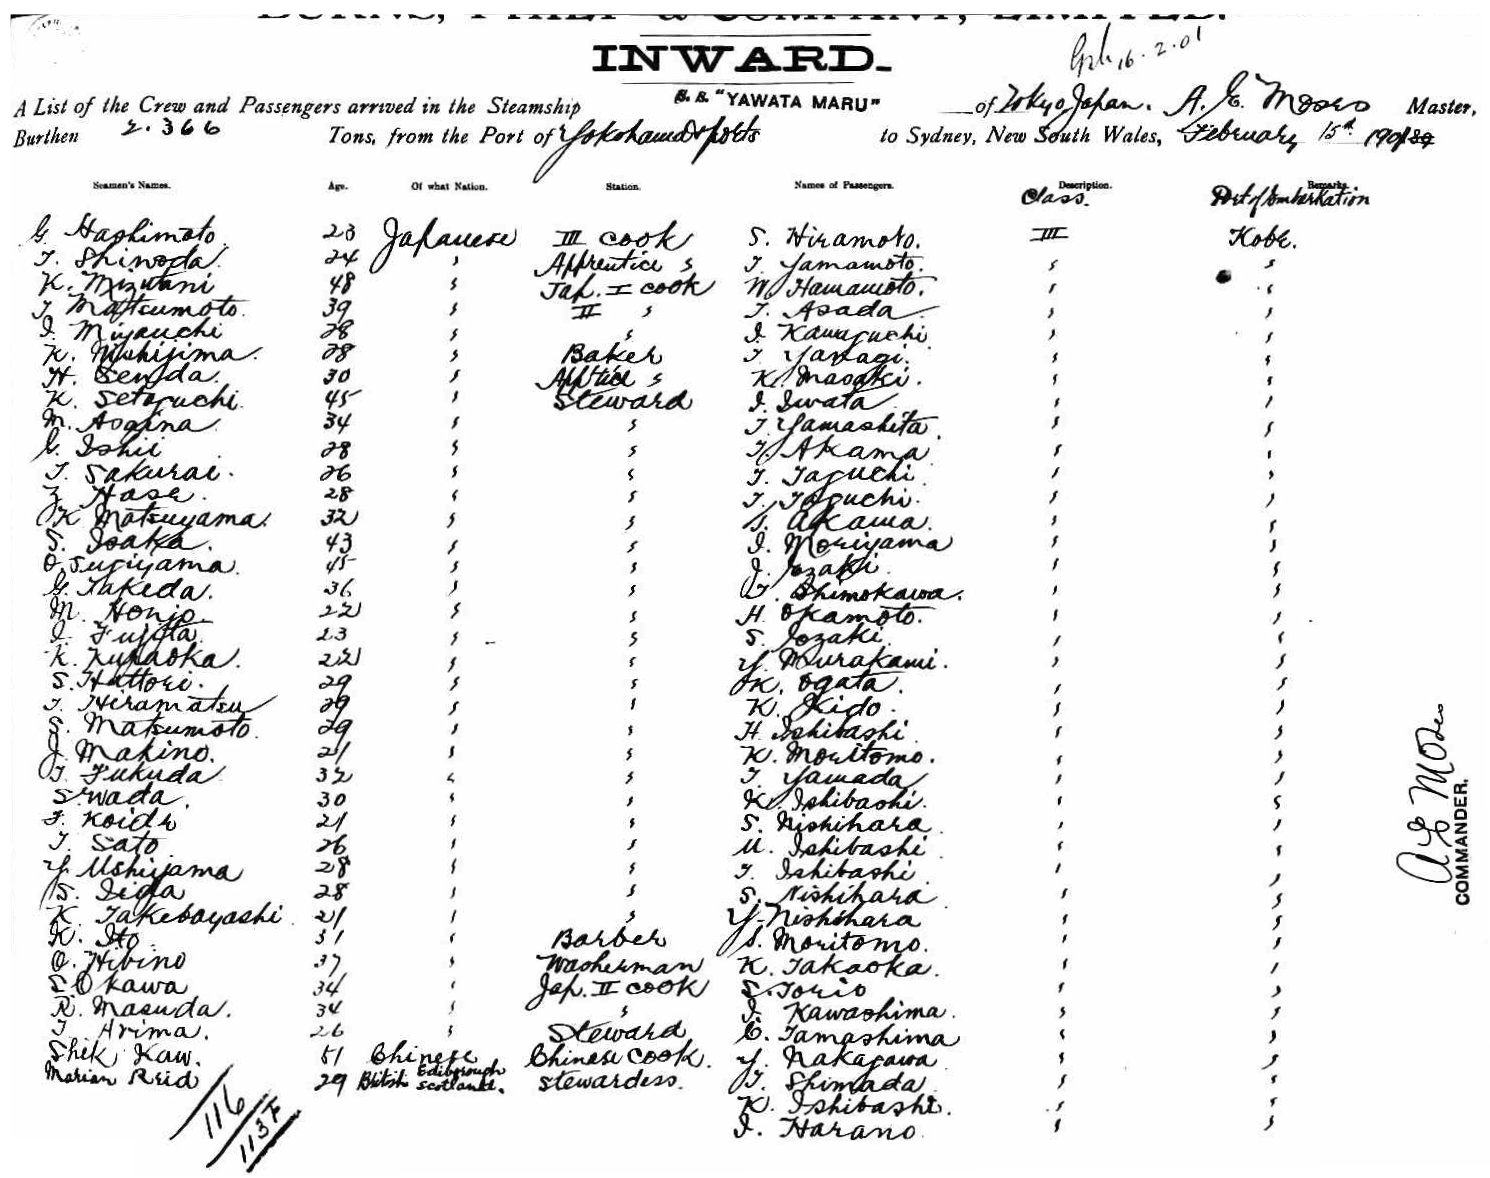 BURNS, PHILP & COMPANY, LIMITED.
INWARD.
16.2.01
A List of the Crew and Passengers arrived in the Steamship S.S. "YAWATA MARU" of Tokyo Japan. A. E. Moses Master,
Burthen 2.366 Tons, from the Port of Yokohama & ports to Sydney, New South Wales, February 15th 1901
Seamen's Names. Age. Of what Nation. Station. Names of Passengers. Description. Remarks.
Class. Port of Embarkation
G. Hashimoto 23 Japanese III cook S. Hiramoto. III Kobe.
T. Shinoda 24 " Apprentice " T. Yamamoto. " "
K. Mizutani 48 " Jap. I cook W. Hamamoto. " "
T. Matsumoto. 39 " II " T. Asada " "
I. Miyauchi 28 " " I. Kawaguchi " "
K. Nishijima. 28 " Baker T. Yanagi. " "
H. Senda. 30 " App'tice " K. Masaki. " "
K. Setoguchi 45 " Steward I. Iwata " "
M. Aogina 34 " " T. Yamashita. " "
G. Ishii 28 " " T. Akama " "
T. Sakurai. 26 " " T. Taguchi " "
Z. Hase. 28 " " T. Taguchi. " "
K. Matsuyama. 32 " " S. Akawa. " "
S. Isaka. 43 " " I. Moriyama " "
O. Sugiyama. 45 " " J. Iozaki. " "
G. Takeda. 36 " " T. Shimokawa. " "
M. Honjo 22 " " H. Okamoto. " "
I. Fujita. 23 " " S. Iozaki. " "
K. Kuraoka. 22 " " Y. Murakami. " "
S. Hattori. 29 " " K. Ogata. " "
T. Hiramatsu 29 " " K. Kido. " "
S. Matsumoto. 29 " " H. Ishibashi " "
J. Makino. 21 " " K. Moritomo. " "
T. Fukuda 32 " " T. Yamada " "
S. Wada. 30 " " K. Ishibashi. " "
F. Koide 21 " " S. Nishihara " "
T. Sato 26 " " U. Ishibashi " "
Y. Ushiyama 28 " " T. Ishibashi " "
S. Iida 28 " " S. Nishihara " "
K. Takebayashi 21 " " Y. Nishihara " "
K. Ito 31 " Barber S. Moritomo. " "
O. Hibino 37 " Washerman K. Takaoka. " "
S. Okawa 34 " Jap. II cook S. Torio " "
R. Masuda. 34 " " I. Kawashima. " "
T. Arima. 26 " Steward C. Tamashima " "
Shek Kaw. 51 Chinese Chinese cook. Y. Nakagawa " "
Marian Reid 29 British Edinborough Scotland. Stewardess. T. Shimada " "
K. Ishibashi. " "
I. Harano. " "
116
113F
A E Moses
COMMANDER.